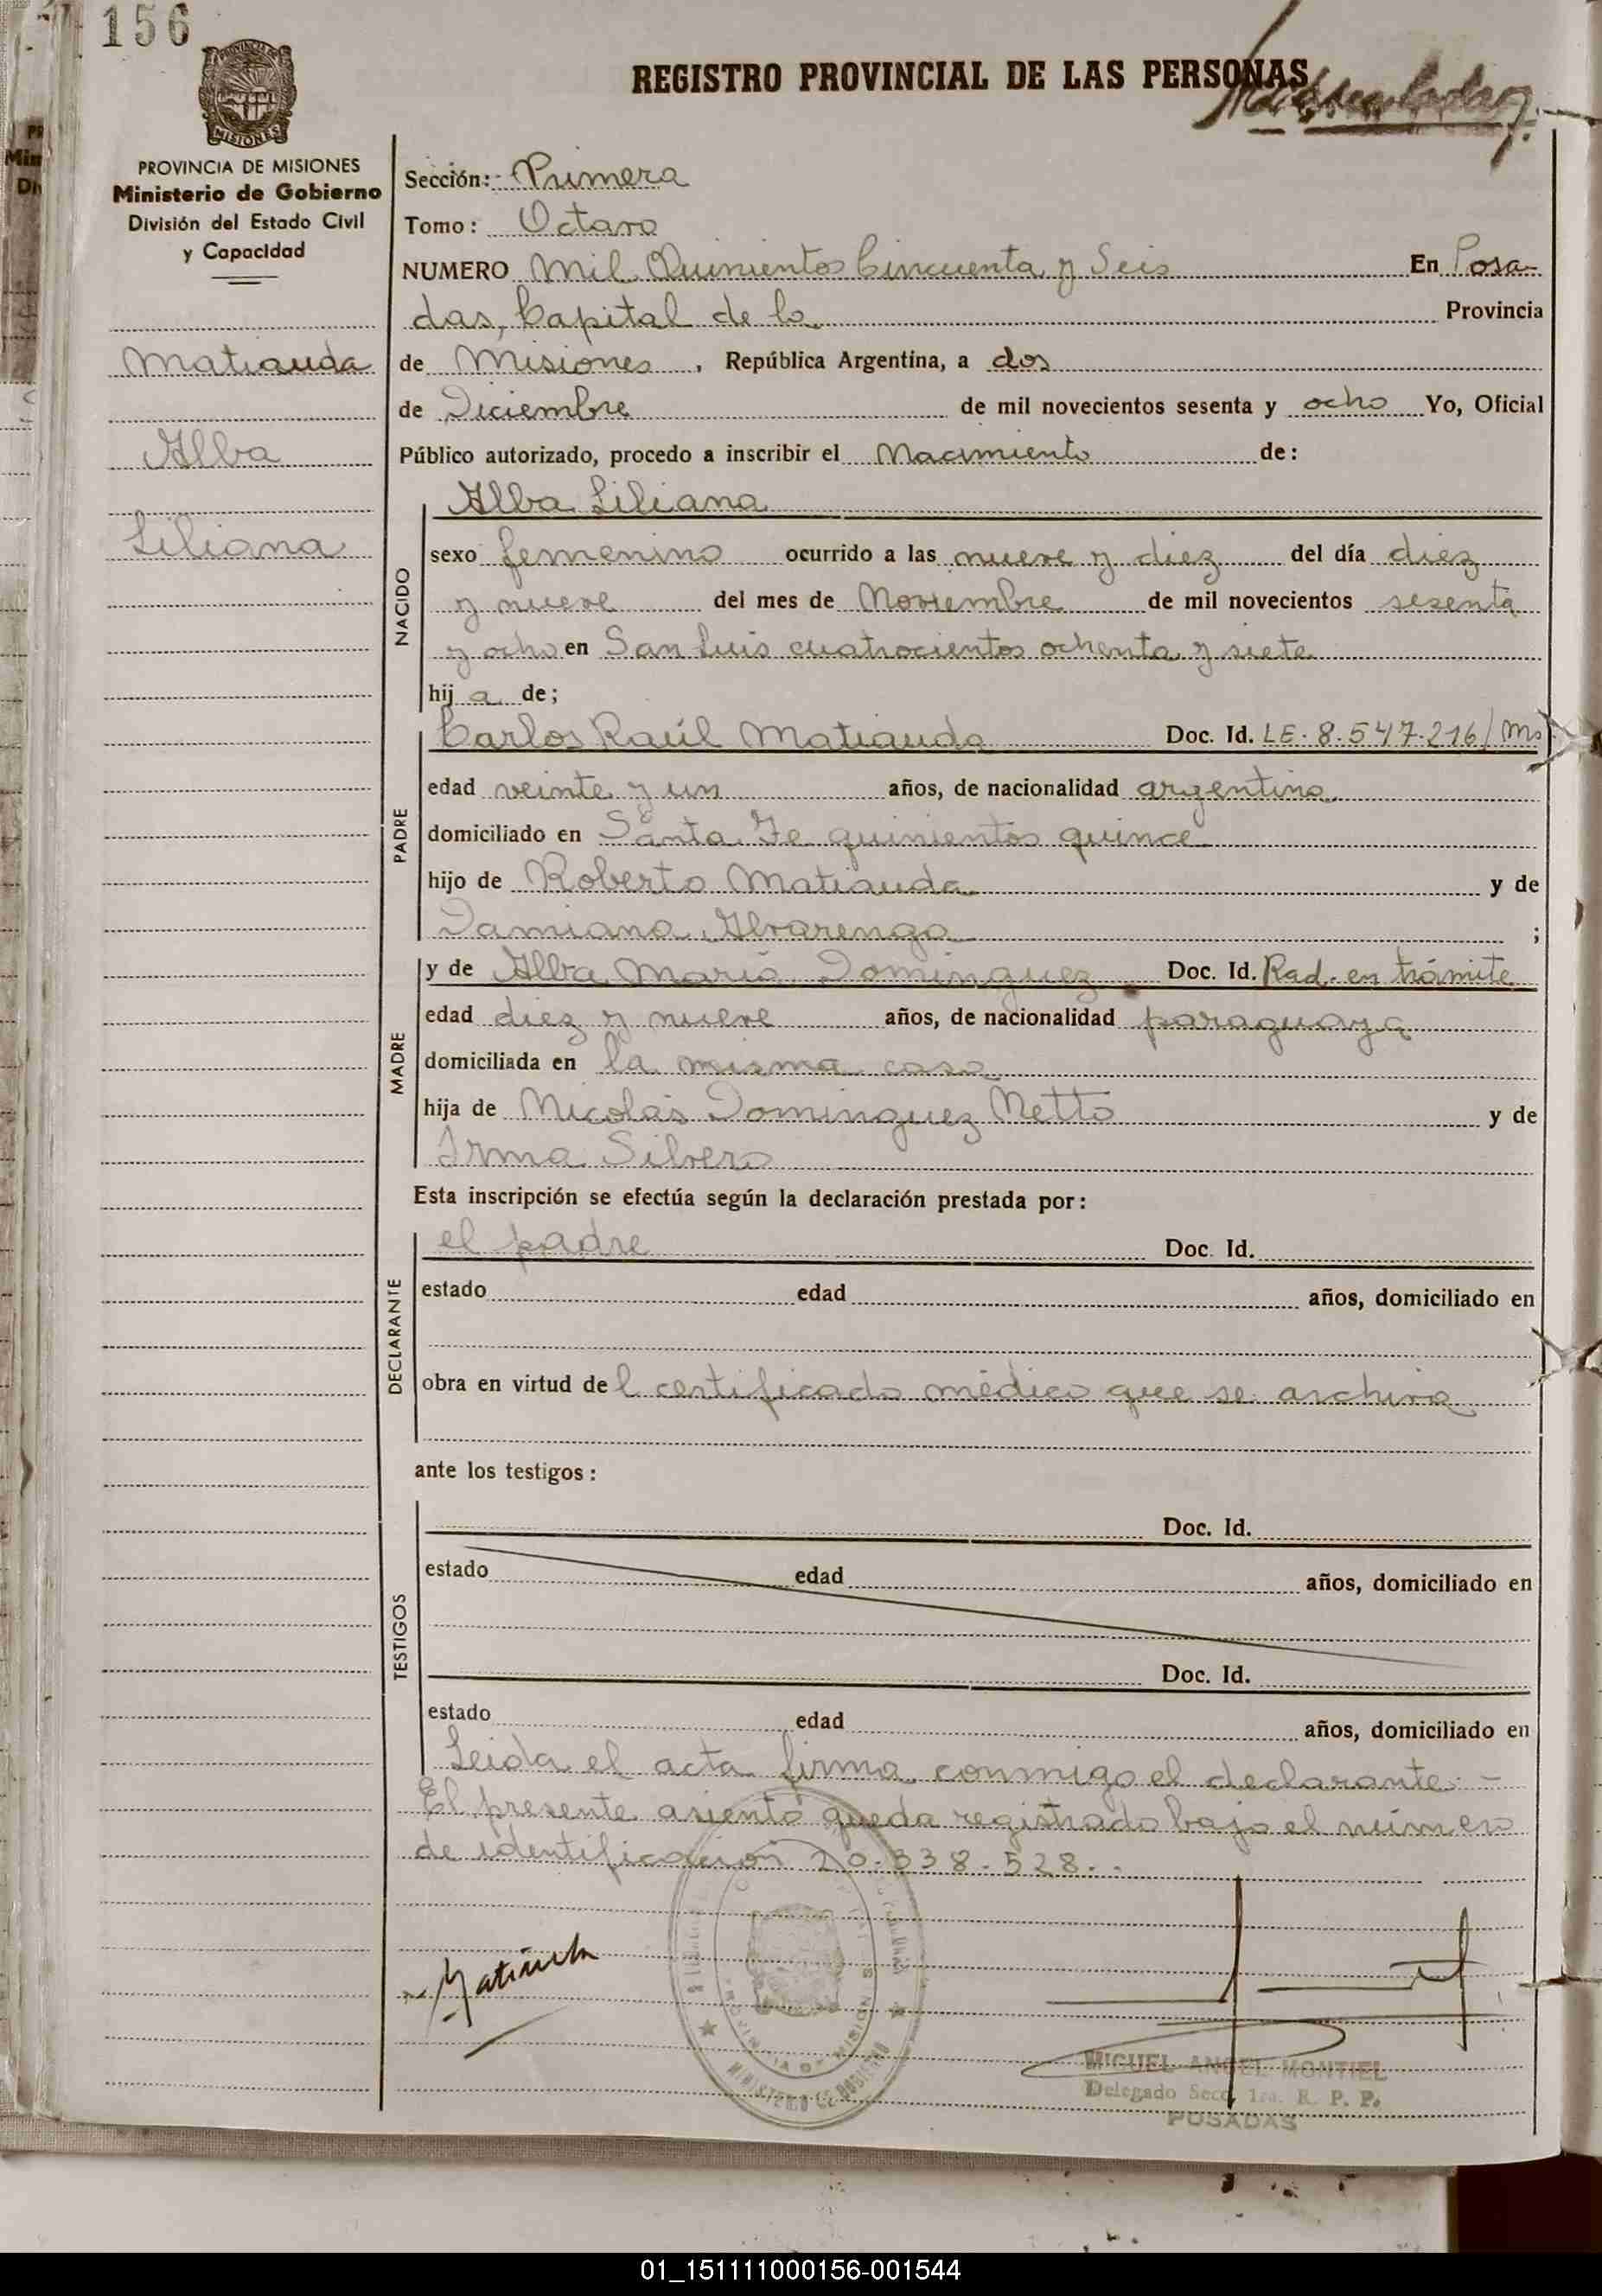 156
REGISTRO PROVINCIAL DE LAS PERSONAS
PROVINCIA DE MISIONES
Ministerio de Gobierno
División del Estado Civil
y Capacidad
Matiauda
Alba
Liliana
Sección: Primera
Tomo: Octavo
NUMERO Mil Quinientos Cincuenta y Seis En Posa-
das, Capital de la Provincia
de Misiones, República Argentina, a dos
de Diciembre de mil novecientos sesenta y ocho Yo, Oficial
Público autorizado, procedo a inscribir el Nacimiento de:
NACIDO
Alba Liliana
sexo femenino ocurrido a las nueve y diez del día diez
y nueve del mes de Noviembre de mil novecientos sesenta
y ocho en San Luis cuatrocientos ochenta y siete
hij a de;
PADRE
Carlos Raúl Matiauda Doc. Id. LE. 8.547.216/Ms
edad veinte y un años, de nacionalidad argentina
domiciliado en Santa Fe quinientos quince
hijo de Roberto Matiauda y de
Damiana Alvarenga ;
MADRE
y de Alba María Dominguez Doc. Id. Rad. en trámite
edad diez y nueve años, de nacionalidad paraguaya
domiciliada en la misma casa
hija de Nicolás Dominguez Netto y de
Irma Silvero
Esta inscripción se efectúa según la declaración prestada por:
DECLARANTE
el padre Doc. Id.
estado edad años, domiciliado en
obra en virtud del certificado médico que se archiva
ante los testigos:
TESTIGOS
Doc. Id.
estado edad años, domiciliado en
Doc. Id.
estado edad años, domiciliado en
Leida el acta firma conmigo el declarante.-
El presente asiento queda registrado bajo el número
de identificación 20.338.528.-
Matiauda
PROVINCIA DE MISIONES
MINISTERIO DE GOBIERNO
MIGUEL ANGEL MONTIEL
Delegado Secc. 1ra. R. P. P.
POSADAS
01_151111000156-001544